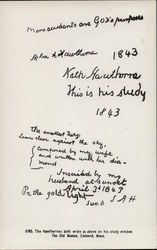 Man's accidents are GOD's purposes
Sophia A Hawthorne 1843
Nath Hawthorne
This is his study
1843
The smallest twig
Leans clear against the sky.
Composed by my wife,
and written with her dia-
mond
Inscribed by my
husband at sunset
April 3d 1843
In the gold light
S A H
The Hawthornes both wrote as above on his study window
The Old Manse, Concord, Mass.